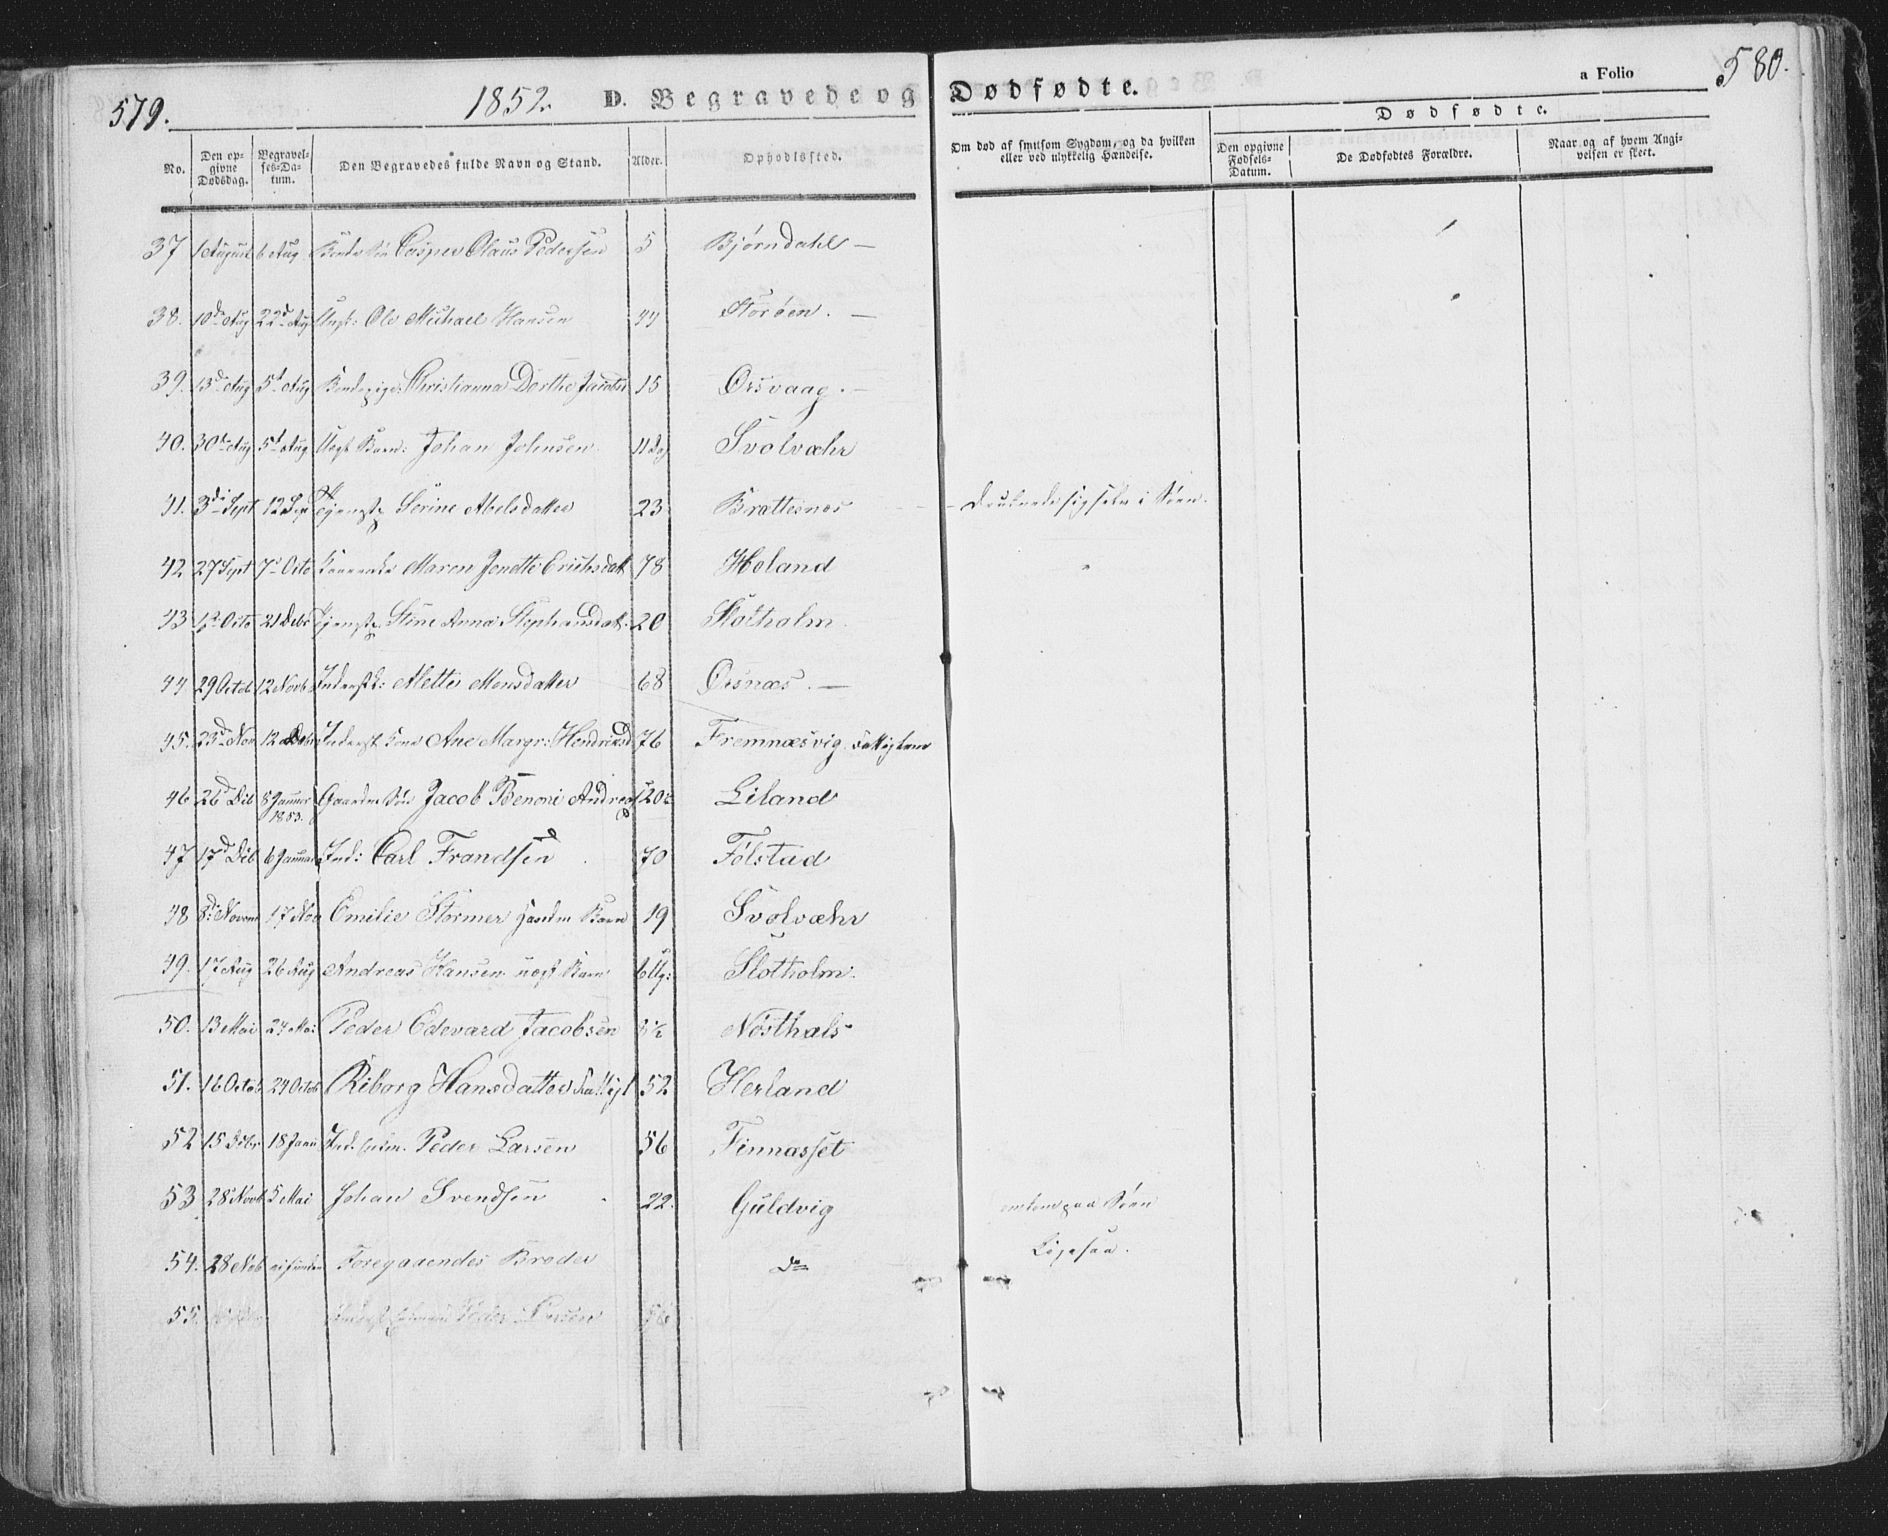 579.
1852.
D. Begravede og Dødfødte.
a Folio 580.
Dødfødte.
No.
Den opgivne Dødsdag.
Begravelses-Datum.
Den Begravedes fulde Navn og Stand.
Alder.
Opholdssted.
Om død af smitsom Sygdom, og da hvilken eller ved ulykkelig Hændelse.
Den opgivne Fødsels-Datum.
De Dødfødtes Forældre.
Naar og af hvem Angivelsen er skeet.
37 1 August 6 Aug Casper Olaus Pedersen 5 Bjørndahl —
38. 10d Aug 22d Aug Ungk: Ole Michael Hansen 44 Storøen. —
39. 13d Aug 5t Aug Bondepige: Christianna Dorthe Jacobs 15 Orsvaag. —
40. 30te Aug 5t Aug Uægt Barn: Johan Johnsen 11 Dg Svolvæhr
41. 3di Sept 12 Sep Tjenestp Serine Abelsdatter 23 Brattesnes — druknede sig selv i Søen.
42 27 Sept 7d Octo Maren Jonette Erichsdatt 78 Høland
43 12 Octo 21 Debr Tjenestp. Stine Anna Stephansdatt. 20 Slotholm
44 29 Octob 12 Novb Inderstk: Mette Monsdatter 68 Orsnæs. —
45. 23d Nov 12 Debr Inderst Kone Ane Margr: Hendriksd 76 Fremnæsvig. Fattiglem
46 26d Deb 8 Januar 1853. Gaardm Søn Jacob Benoni Andreas 20 Liland
47 17d Deb 6 Januar Ind: Carl Frandsen 70 Følstad
48 8d Novem 17 Nov Emilie Stormer Handm Barn 19 Svolvæhr
49. 17 Aug 26 Aug Andreas Hansen uægt Barn 6 Ug: Slotholm.
50. 13 Mai 24 Mai Peder Edevard Jacobsen 8½ Nøsthals
51. 16 Octob 24 Octob Riborg Hansdatter Fattigl 52 Herland
52 15 Debr 18 Janu Ind. Peder Larsen 56 Finnæsset
53 28 Novb 5 Mai Johan Svendsen 22. Guldvig omkom paa Søen
54. 28 Nob ei funden Foregaaendes Broder do Ligesaa.
55. Peder Larsen 56